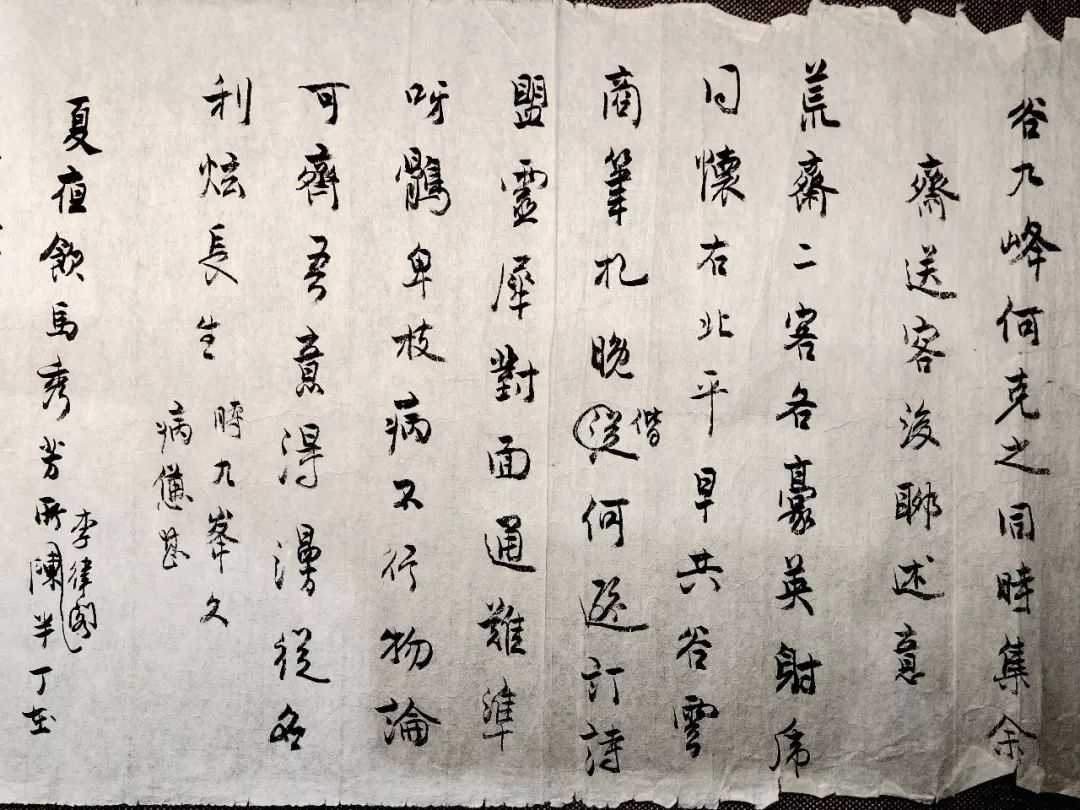 谷九峰何克之同時集余
齋送客後聊述意
荒齋二客各豪英射虎
同懷右北平早共谷雲
商筆札晚從何遜訂詩
偕
盟靈犀對面通難準
呀鶻卑枝病不行物論
可齊吾意得漫從名
利炫長生
時九峯久
病憊甚
夏夜飲馬秀芳所陳半丁在
李律閣